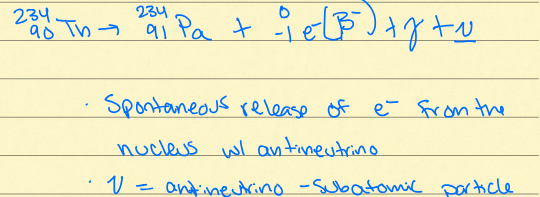 ²³⁴₉₀Th → ²³⁴₉₁Pa + ⁰₋₁e⁻(β⁻) + γ + ν
· Spontaneous release of e⁻ from the
nucleus w/ antineutrino
· ν = antineutrino - subatomic particle